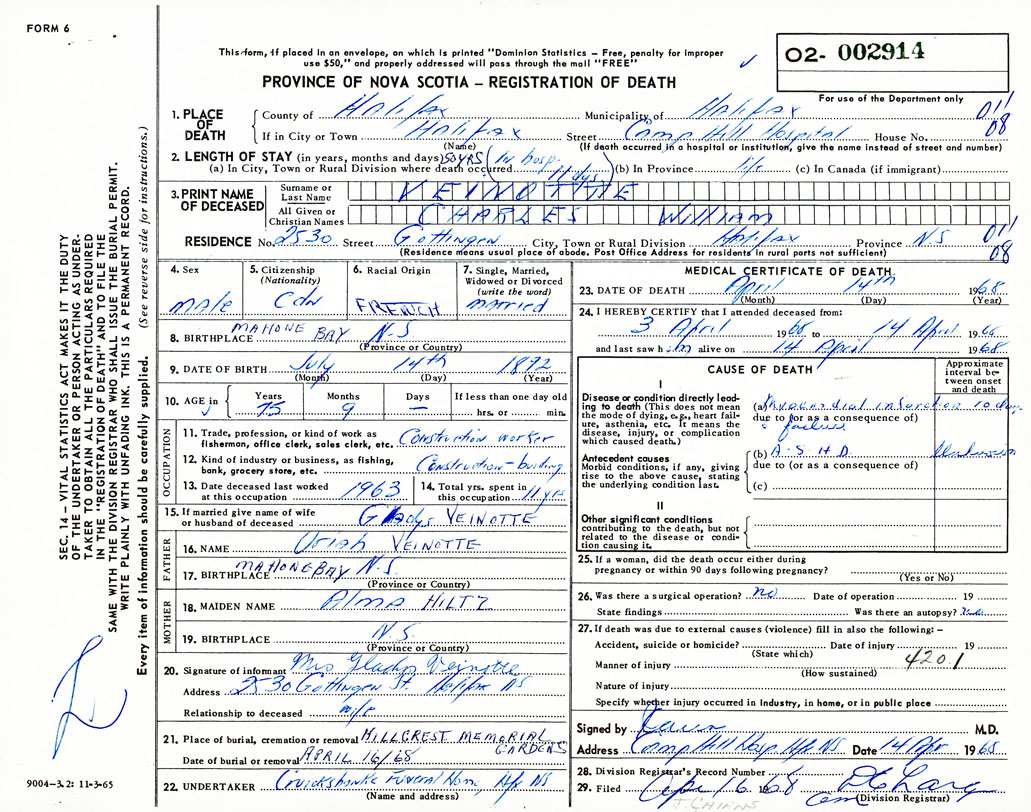 FORM 6
This form, if placed in an envelope, on which is printed "Dominion Statistics – Free, penalty for improper
use $50," and properly addressed will pass through the mail "FREE"
O2- 002914
PROVINCE OF NOVA SCOTIA – REGISTRATION OF DEATH
For use of the Department only
1. PLACE OF DEATH
County of Halifax Municipality of Halifax 011
If in City or Town Halifax Street Camp Hill Hospital House No. 08
(Name) (If death occurred in a hospital or institution, give the name instead of street and number)
2. LENGTH OF STAY (in years, months and days) 50 YRS (in hosp.
(a) In City, Town or Rural Division where death occurred 11 dys) (b) In Province life (c) In Canada (if immigrant)
3. PRINT NAME OF DECEASED
Surname or Last Name VEINOTTE
All Given or Christian Names CHARLES William
RESIDENCE No. 2530 Street Gottingen City, Town or Rural Division Halifax Province NS 011
(Residence means usual place of abode. Post Office Address for residents in rural parts not sufficient) 08
4. Sex male
5. Citizenship (Nationality) Cdn
6. Racial Origin FRENCH
7. Single, Married, Widowed or Divorced (write the word) married
8. BIRTHPLACE MAHONE BAY N-S
(Province or Country)
9. DATE OF BIRTH July 14th 1892
(Month) (Day) (Year)
10. AGE in Years 75 Months 9 Days — If less than one day old hrs. or min.
OCCUPATION
11. Trade, profession, or kind of work as
fisherman, office clerk, sales clerk, etc. Construction worker
12. Kind of industry or business, as fishing,
bank, grocery store, etc. Construction-building
13. Date deceased last worked
at this occupation 1963
14. Total yrs. spent in
this occupation 11 yrs
15. If married give name of wife
or husband of deceased Gladys VEINOTTE
FATHER
16. NAME Uriah VEINOTTE
17. BIRTHPLACE MAHONE BAY N-S
(Province or Country)
MOTHER
18. MAIDEN NAME Alma HILTZ
19. BIRTHPLACE N.S.
(Province or Country)
20. Signature of informant Mrs Gladys Veinotte
Address 2530 Gottingen St. Halifax NS
Relationship to deceased wife
21. Place of burial, cremation or removal HILLCREST MEMORIAL GARDENS
Date of burial or removal APRIL 16/68
22. UNDERTAKER Cruickshanks Funeral Home, Hfx NS
(Name and address)
MEDICAL CERTIFICATE OF DEATH
23. DATE OF DEATH April 14th 1968
(Month) (Day) (Year)
24. I HEREBY CERTIFY that I attended deceased from:
3 April 1968 to 14 April 1968
and last saw him alive on 14 April 1968
CAUSE OF DEATH
Approximate interval between onset and death
I
Disease or condition directly leading to death (This does not mean the mode of dying, e.g., heart failure, asthenia, etc. It means the disease, injury, or complication which caused death.)
(a) Myocardial infarction 10 days
due to (or as a consequence of)
failure
Antecedent causes
Morbid conditions, if any, giving rise to the above cause, stating the underlying condition last.
(b) A-S H D. Unknown
due to (or as a consequence of)
(c)
II
Other significant conditions
contributing to the death, but not related to the disease or condition causing it.
25. If a woman, did the death occur either during
pregnancy or within 90 days following pregnancy?
(Yes or No)
26. Was there a surgical operation? no Date of operation 19
State findings Was there an autopsy?
27. If death was due to external causes (violence) fill in also the following: –
Accident, suicide or homicide? Date of injury 19
(State which) 420.1
Manner of injury
(How sustained)
Nature of injury
Specify whether injury occurred in industry, in home, or in public place
Signed by M.D.
Address Camp Hill Hosp Hfx NS Date 14 Apr 1968
28. Division Registrar's Record Number
29. Filed Apr 16 1968
(Division Registrar)
SEC. 14 – VITAL STATISTICS ACT MAKES IT THE DUTY
OF THE UNDERTAKER OR PERSON ACTING AS UNDER-
TAKER TO OBTAIN ALL THE PARTICULARS REQUIRED
IN THE "REGISTRATION OF DEATH" AND TO FILE THE
SAME WITH THE DIVISION REGISTRAR WHO SHALL ISSUE THE BURIAL PERMIT.
WRITE PLAINLY WITH UNFADING INK. THIS IS A PERMANENT RECORD.
Every item of information should be carefully supplied. (See reverse side for instructions.)
9004-3.2: 11-3-65